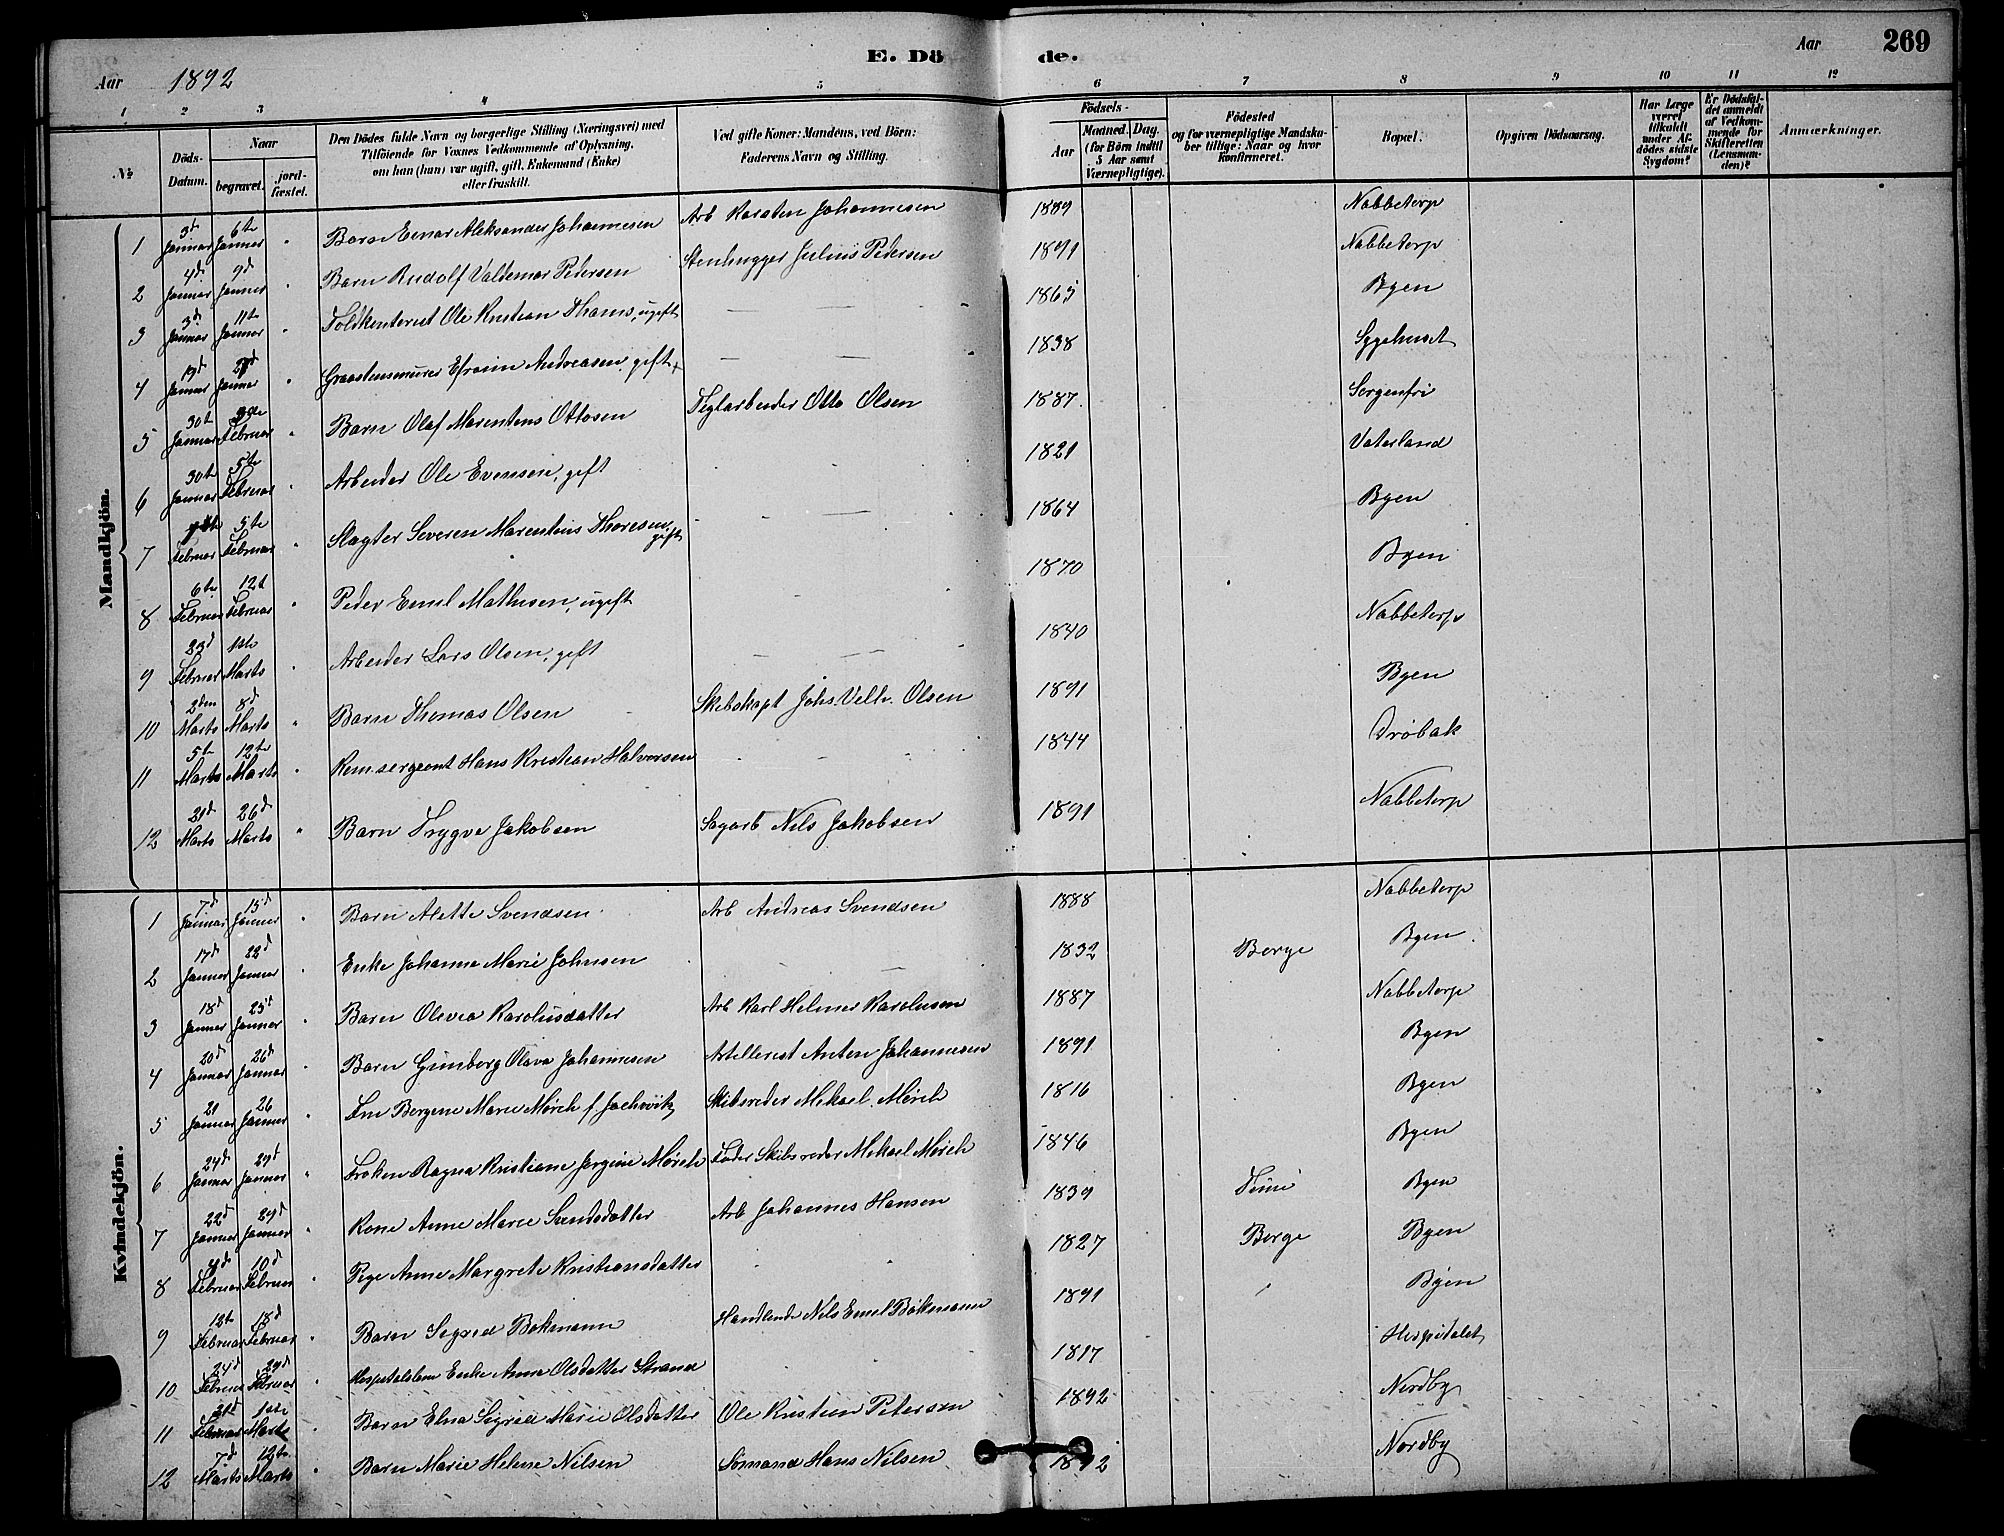 E. Döde.
Aar 1892
Aar 269
1 2 3 4 5 6 7 8 9 10 11 12
№
Döds-Datum.
Naar begravet. jordfæstet.
Den Dödes fulde Navn og borgerlige Stilling (Næringsvei) med Tilföiende for Voxnes Vedkommende af Oplysning, om han (hun) var ugift, gift, Enkemand (Enke) eller fraskilt.
Ved gifte Koner: Mandens, ved Börn: Faderens Navn og Stilling.
Födsels-
Aar Maaned. Dag. (for Börn indtil 5 Aar samt Værnepligtige).
Födested og for værnepligtige Mandskaber tillige: Naar og hvor konfirmeret.
Bopæl.
Opgiven Dödsaarsag.
Har Læge været tilkaldt under Afdödes sidste Sygdom?
Er Dödsfaldet anmeldt af Vedkommende for Skifteretten (Lensmanden)?
Anmærkninger.
Mandkjön.
1 3d Januar 6te Januar " Barn Einar Aleksander Johannesen Arb Karsten Johannesen 1889 Nabbetorp
2 4d Januar 9d Januar " Barn Rudolf Valdemar Petersen Stenhugger Julius Petersen 1891 Nabbetorp
3 3d Januar 11te Januar " Toldkonterist Ole Kristian Thams, ugift — — 1865 Byen
4 19d Januar Januar " Graastensmurer Efraim Andreasen, gift — — 1838 Sygehuset
5 30t Januar Februar " Barn Olaf Marentius Ottosen Teglarbeider Otto Olsen 1887 Sorgenfri
6 30te Januar 5te Februar " Arbeider Ole Evensen, gift 1821 Vaterland
7 Februar 5te Februar " Slagter Severin Marentius Thoresen, gift 1864 Byen
8 6te Februar 12t Februar " Peder Emil Mathisen, ugift 1870 Byen
9 23d Februar 1ste Marts " Arbeider Lars Olsen, gift 1840 Nabbetorp
10 2den Marts 8d Marts " Barn Thomas Olsen Skibskapt Johs. Vilh. Olsen 1891 Byen
11 5te Marts 12te Marts " Rem.sergeant Hans Kristian Halvorsen 1844 Drøbak
12 21d Marts 26d Marts " Barn Trygve Jakobsen Sagarb Nils Jakobsen 1891 Nabbetorp
Kvindekjön.
1 7d Januar 15d Januar " Barn Alette Svendsen Arb Andreas Svendsen 1888 Nabbetorp
2 17d Januar 22d Januar " Enke Johanne Marie Johnsen — — 1832 Borge Byen
3 18d Januar 25d Januar " Barn Olevia Karolusdatter Arb Karl Helmer Karolusen 1887 Nabbetorp
4 20d Januar 26d Januar " Barn Gunborg Olava Johannesen Artillerist Anton Johannesen 1891 Byen
5 21 Januar 26 Januar " Fru Bergene Marie Mørch f. Skibsreder Mikael Mørch 1816 Byen
6 24d Januar 29d Januar " Frøken Ragna Kristiane Jørgine Mørch Fader Skibsreder Mikael Mørch 1846 Byen
7 22d Januar 29d Januar " Kone Anne Marie Arb Johannes Hansen 1839 Byen
8 Februar 10d Februar " Pige Anne Margrete Kristiansdatter 1827 Borge Byen
9 12te Februar 18d Februar " Barn Sigrid Bökmann Handlende Nils Emil Bökmann 1891 Byen
10 24d Februar 29d Februar " Hospitalslem Enke Anne Olsdatter Strand 1817 Hospitalet
11 Februar 1ste Marts " Barn Elna Sigrid Marie Olsdatter Ole Kristian Petersen 1892 Nordby
12 7d Marts 12te Marts " Barn Marie Helene Nilsen Sömand Hans Nilsen 1892 Nordby